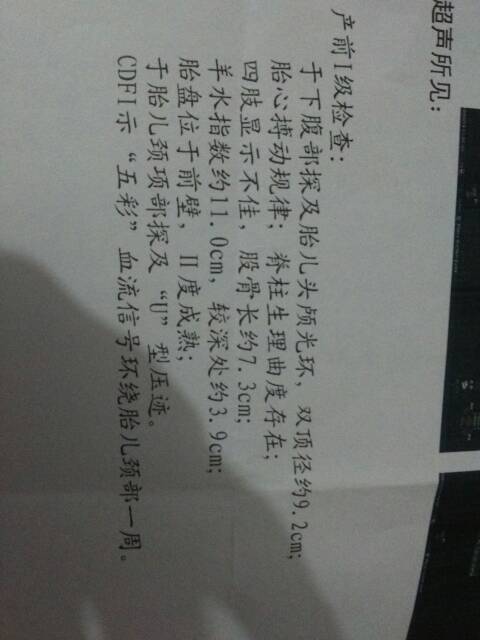 超声所见：
产前I级检查：
于下腹部探及胎儿头颅光环，双顶径约9.2cm;
胎心搏动规律；脊柱生理曲度存在；
四肢显示不佳，股骨长约7.3cm;
羊水指数约11.0cm，较深处约3.9cm;
胎盘位于前壁，II度成熟；
于胎儿颈项部探及“U”型压迹。
CDFI示“五彩”血流信号环绕胎儿颈部一周。